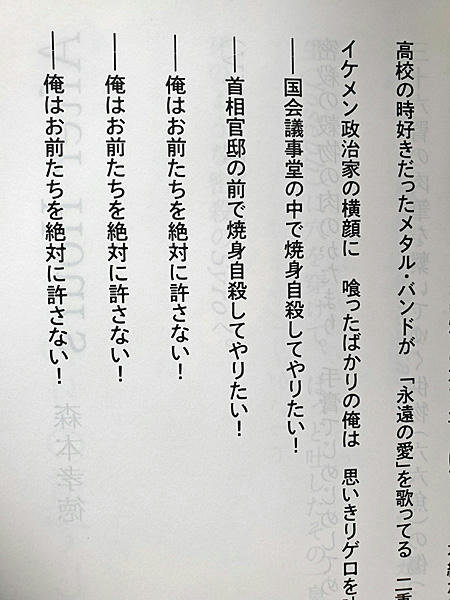 高校の時好きだったメタル・バンドが　「永遠の愛」を歌ってる　二重
イケメン政治家の横顔に　喰ったばかりの俺は　思いきりゲロを
――国会議事堂の中で焼身自殺してやりたい！
――首相官邸の前で焼身自殺してやりたい！
――俺はお前たちを絶対に許さない！
――俺はお前たちを絶対に許さない！
――俺はお前たちを絶対に許さない！